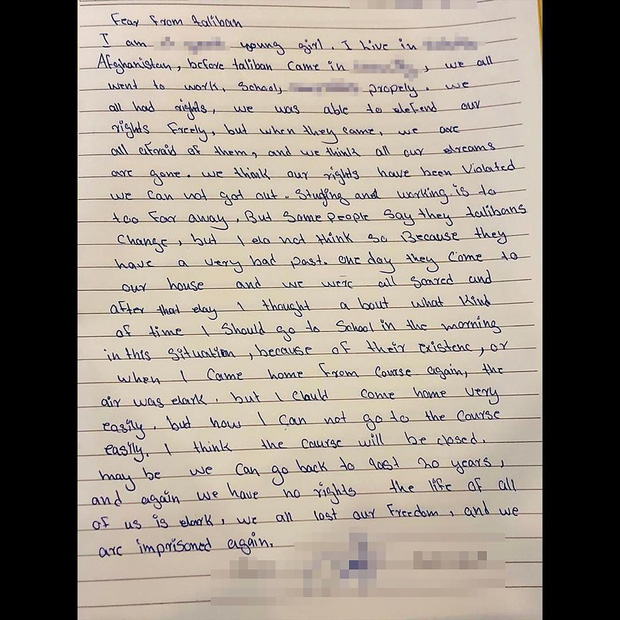 Fear From taliban
I am young girl. I live in
Afghanistan, before taliban came in , we all
went to work, School, propely. we
all had rights, we was able to defend our
rights freely, but when they came, we are
all afraid of them, and we think all our dreams
are gone. we think our rights have been violated
we can not got out. Studing and working is to
too far away, But Some people Say they talibans
Change, but I do not think So Because they
have a very bad past. one day they Come to
our house and we were all Scared and
after that day I thought a bout what kind
of time I Should go to School in the morning
in this Situation, because of their existenc, or
when I Came home From course again, the
air was dark. but I Could come home very
easily, but now I Can not go to the Course
easily. I think the course will be closed.
may be we can go back to last 20 years,
and again we have no rights the life of all
of us is dark, we all lost our freedom, and we
are imprisoned again.